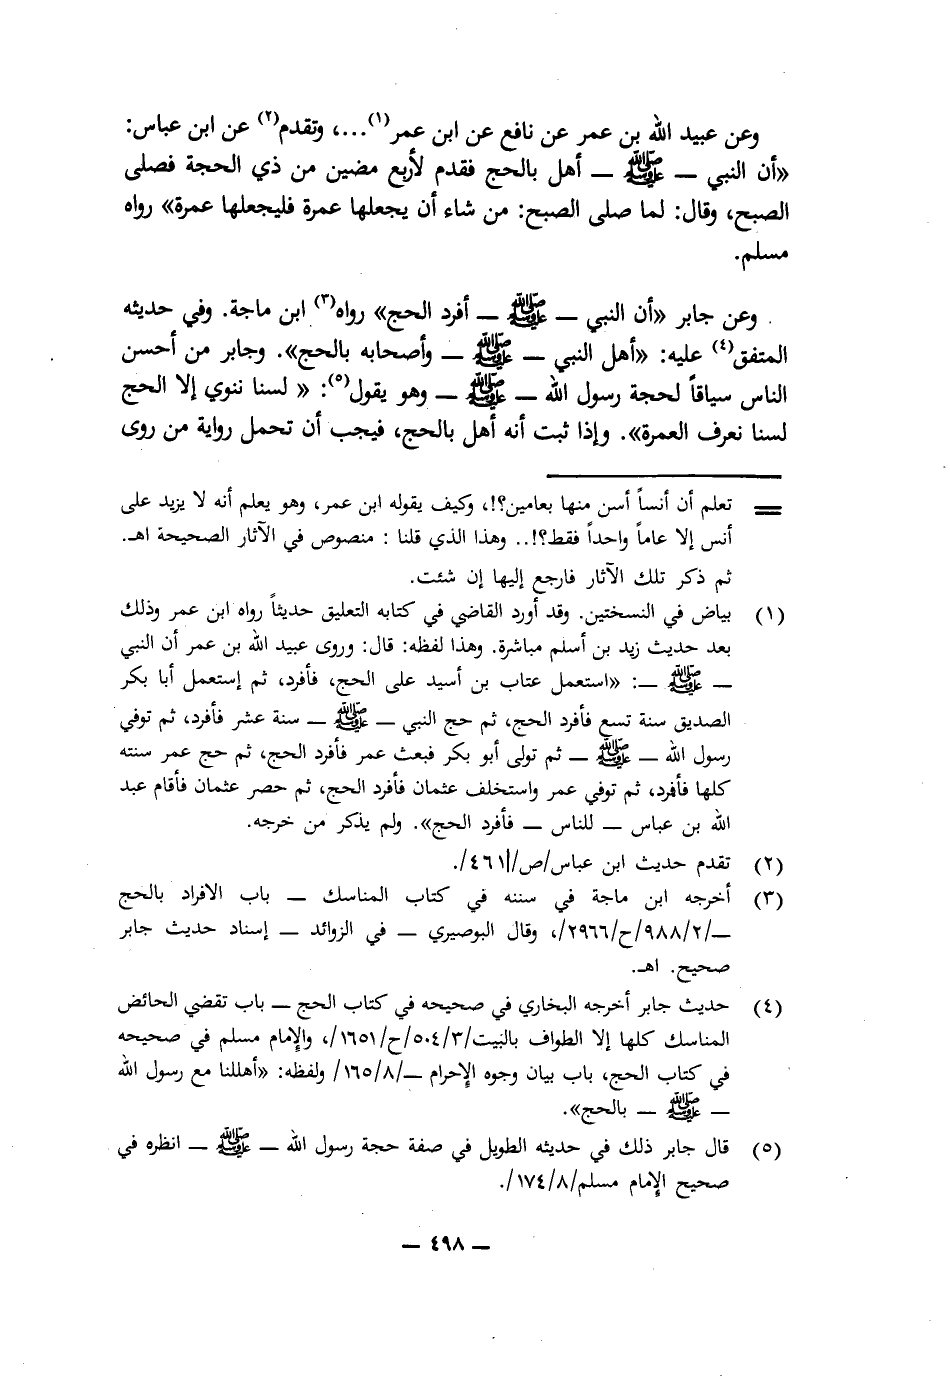 وعن عبيد الله بن عمر عن نافع عن ابن عمر(١)...، وتقدم(٢) عن ابن عباس:
«أن النبي — ﷺ — أهل بالحج فقدم لأربع مضين من ذي الحجة فصلى
الصبح، وقال: لما صلى الصبح: من شاء أن يجعلها عمرة فليجعلها عمرة» رواه
مسلم.
وعن جابر «أن النبي — ﷺ — أفرد الحج» رواه(٣) ابن ماجة. وفي حديثه
المتفق(٤) عليه: «أهل النبي — ﷺ — وأصحابه بالحج». وجابر من أحسن
الناس سياقاً لحجة رسول الله — ﷺ — وهو يقول(٥): « لسنا ننوي إلا الحج
لسنا نعرف العمرة». وإذا ثبت أنه أهل بالحج، فيجب أن تحمل رواية من روى
= تعلم أن أنساً أسن منها بعامين؟!، وكيف يقوله ابن عمر، وهو يعلم أنه لا يزيد على
أنس إلا عاماً واحداً فقط؟!.. وهذا الذي قلنا : منصوص في الآثار الصحيحة اهـ.
ثم ذكر تلك الآثار فارجع إليها إن شئت.
(١) بياض في النسختين. وقد أورد القاضي في كتابه التعليق حديثاً رواه ابن عمر وذلك
بعد حديث زيد بن أسلم مباشرة. وهذا لفظه: قال: وروى عبيد الله بن عمر أن النبي
— ﷺ —: «استعمل عتاب بن أسيد على الحج، فأفرد، ثم إستعمل أبا بكر
الصديق سنة تسع فأفرد الحج، ثم حج النبي — ﷺ — سنة عشر فأفرد، ثم توفي
رسول الله — ﷺ — ثم تولى أبو بكر فبعث عمر فأفرد الحج، ثم حج عمر سنته
كلها فأفرد، ثم توفي عمر واستخلف عثمان فأفرد الحج، ثم حصر عثمان فأقام عبد
الله بن عباس — للناس — فأفرد الحج». ولم يذكر من خرجه.
(٢) تقدم حديث ابن عباس/ص/٤٦١/.
(٣) أخرجه ابن ماجة في سننه في كتاب المناسك — باب الافراد بالحج
—/٩٨٨/٢/ح/٢٩٦٦/، وقال البوصيري — في الزوائد — إسناد حديث جابر
صحيح. اهـ.
(٤) حديث جابر أخرجه البخاري في صحيحه في كتاب الحج — باب تقضي الحائض
المناسك كلها إلا الطواف بالبيت/٥٠٤/٣/ح/١٦٥١/، والإمام مسلم في صحيحه
في كتاب الحج، باب بيان وجوه الإحرام —/١٦٥/٨/ ولفظه: «أهللنا مع رسول الله
— ﷺ — بالحج».
(٥) قال جابر ذلك في حديثه الطويل في صفة حجة رسول الله — ﷺ — انظره في
صحيح الإمام مسلم/١٧٤/٨/.
— ٤٩٨ —